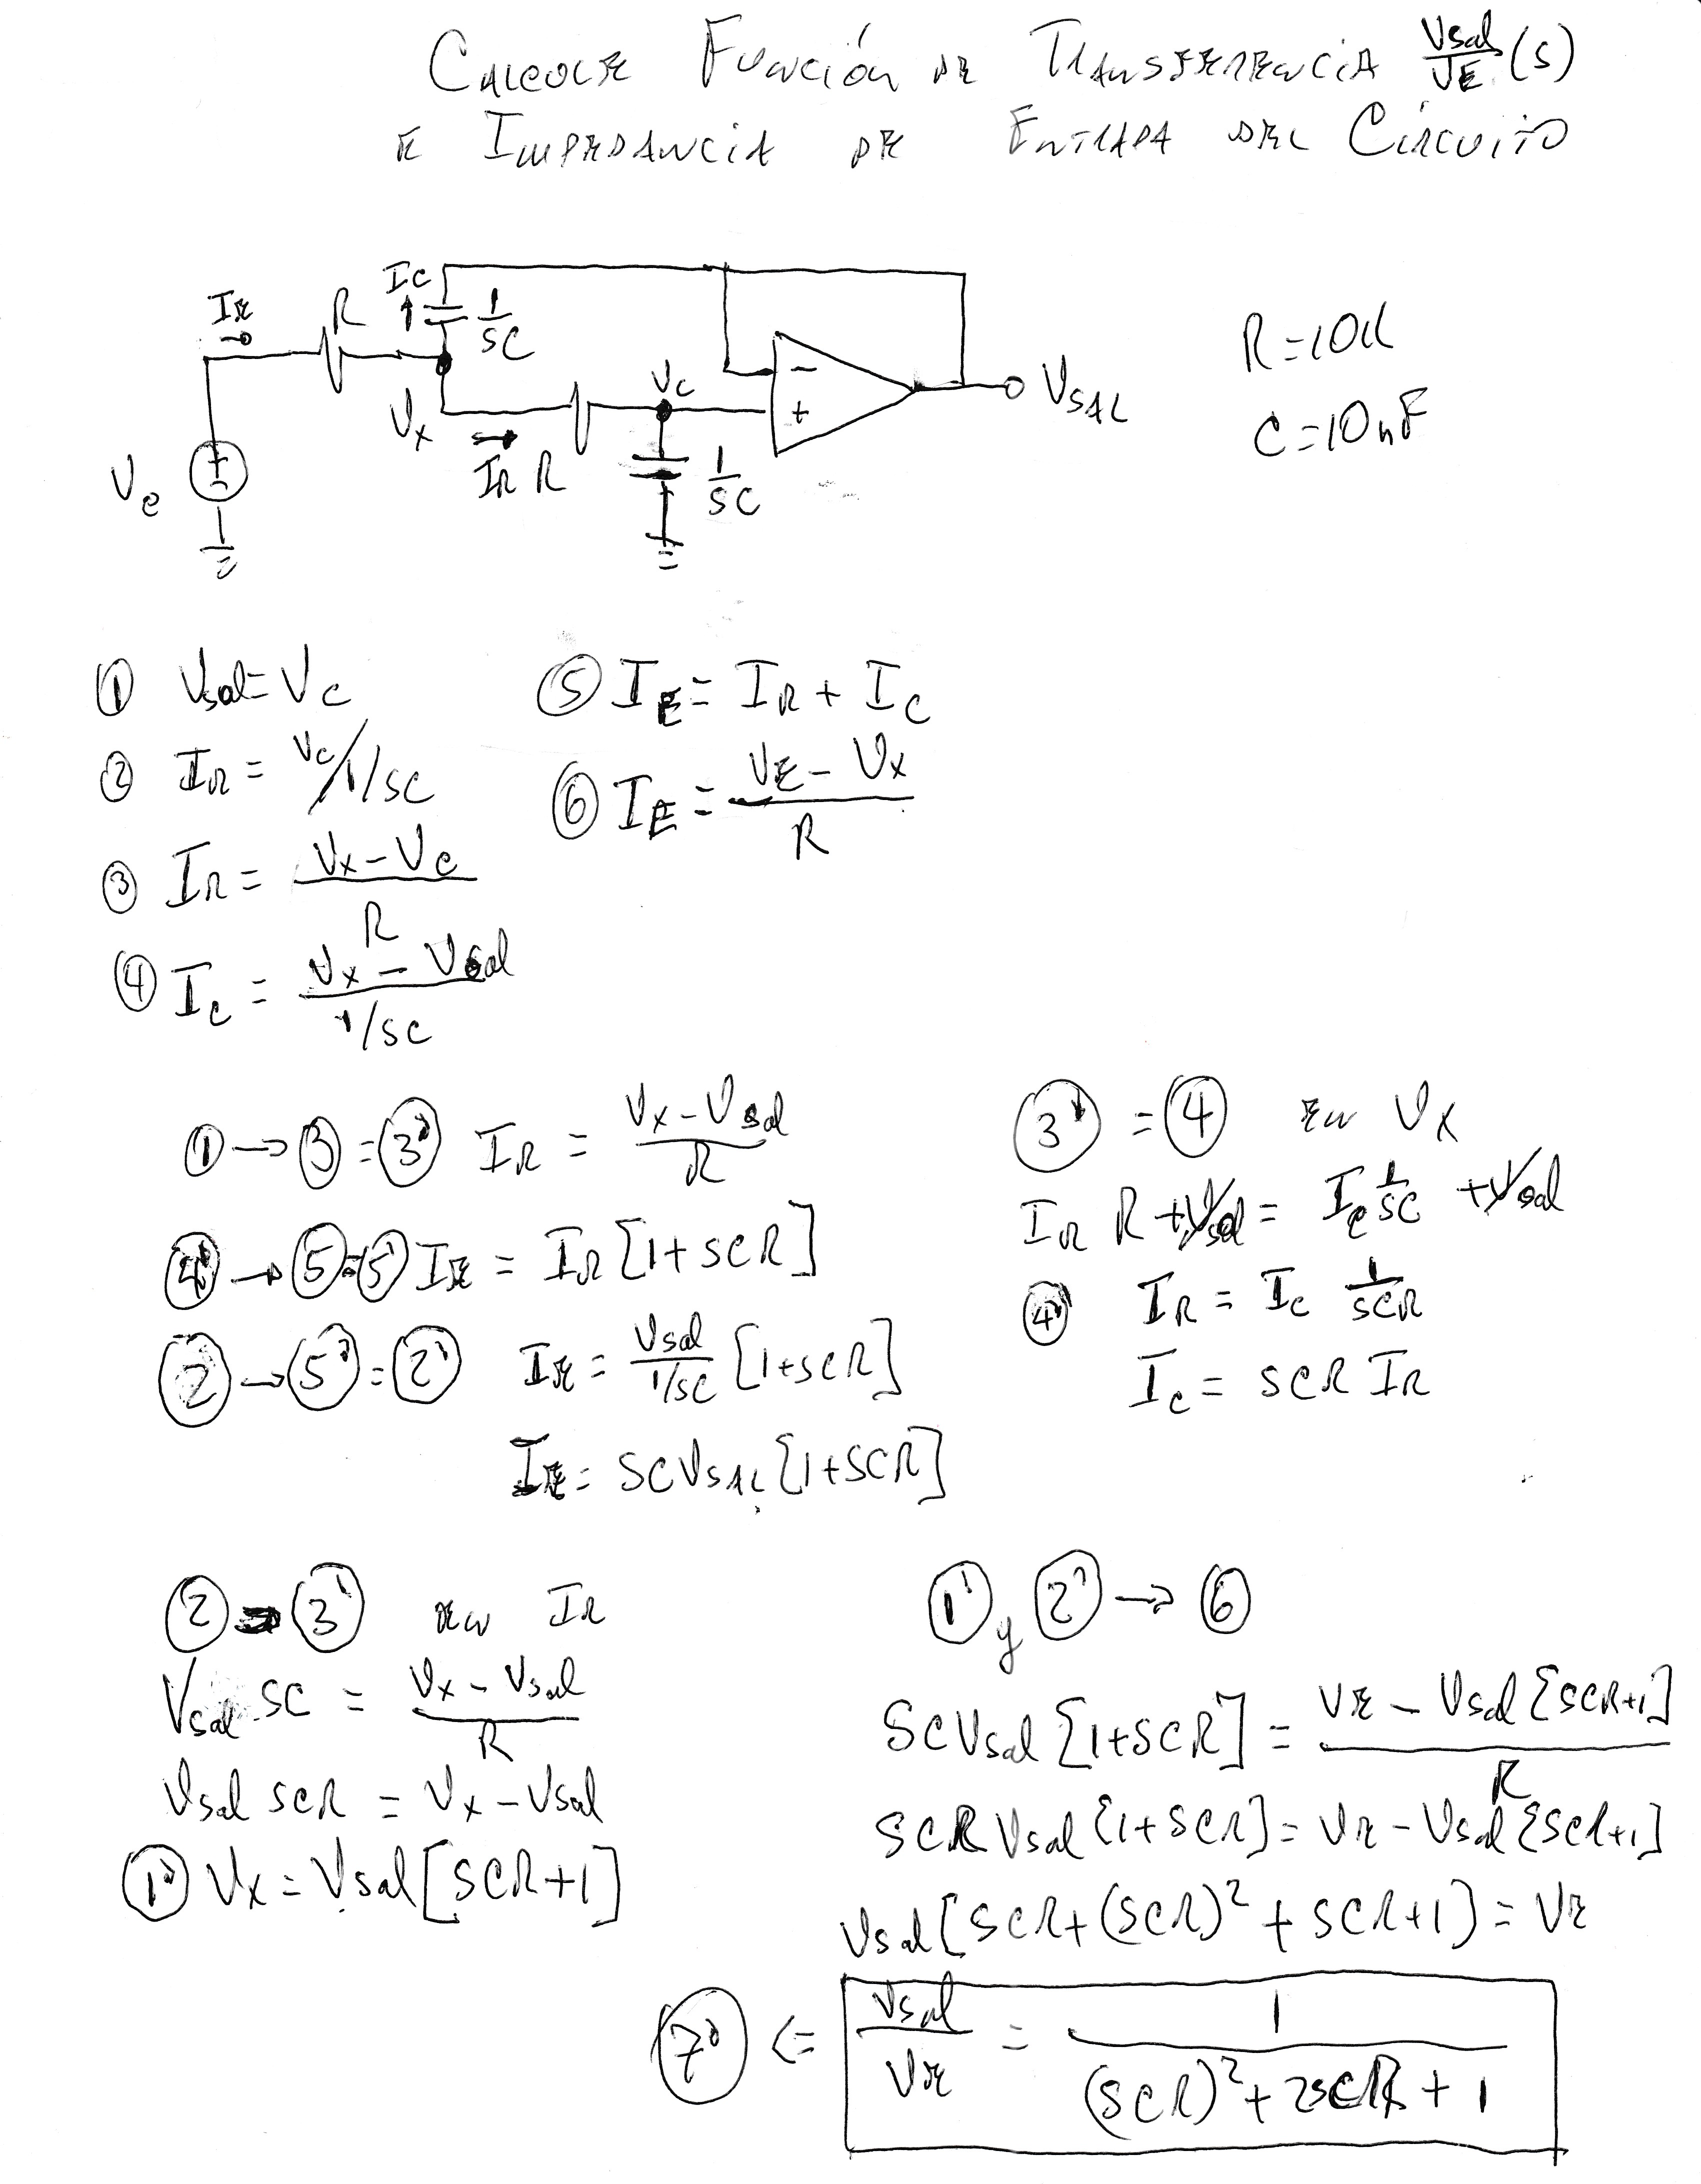 CALCULE FUNCIÓN DE TRANSFERENCIA Vsal/VE (S)
E IMPEDANCIA DE ENTRADA DEL CIRCUITO
IE R IC 1/SC
Vx IR R Vc 1/SC
- +
VSAL
Ve
R=10K
C=10nF
① Vsal=Vc
② IR = Vc/1/SC
③ IR = Vx-Vc/R
④ Ic = Vx-Vsal/1/SC
⑤ IE = IR + IC
⑥ IE = VE-Vx/R
①→③=③' IR = Vx-Vsal/R
④'→⑤=⑤' IE = IR[1+SCR]
②→⑤'=②' IE = Vsal/1/SC [1+SCR]
IE = SCVSAL[1+SCR]
③' = ④ EN Vx
IR R+Vsal = Ic 1/SC +Vsal
④' IR = Ic 1/SCR
Ic = SCR IR
②→③' EN IR
Vsal SC = Vx-Vsal/R
Vsal SCR = Vx-Vsal
①' Vx = Vsal[SCR+1]
①' y ②' → ⑥
SCVsal[1+SCR] = VE-Vsal[SCR+1]/R
SCRVsal[1+SCR] = VE-Vsal[SCR+1]
Vsal[SCR+(SCR)²+SCR+1] = VE
⑦' <= Vsal/VE = 1/(SCR)²+2SCR+1